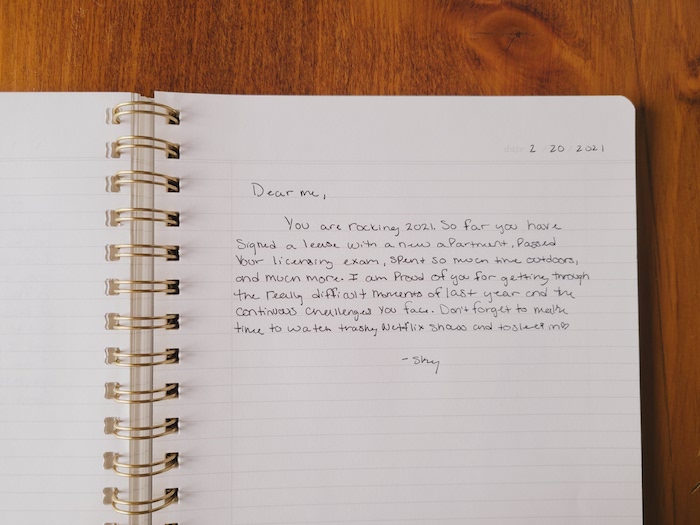 date 2 / 20 / 2021
Dear me,
You are rocking 2021. So far you have
Signed a lease with a new apartment, Passed
Your licensing exam, spent so much time outdoors,
and much more. I am Proud of you for getting through
the really difficult moments of last year and the
continuous challenges you face. Don't forget to make
time to watch trashy Netflix shows and to sleep in♡
- Sky